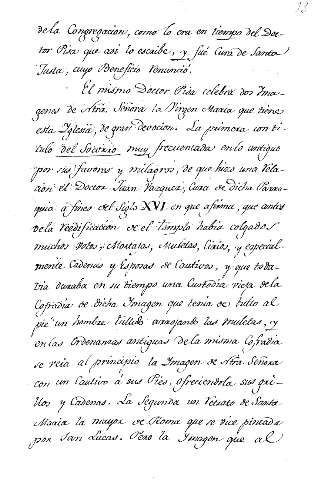 de la Congregacion, como lo era en tiempo del Doc-
tor Pisa que asi lo escribe, y fué Cura de Santa
Justa, cuyo Beneficio renunció.
El mismo Doctor Pisa celebra dos Ima-
genes de Ntra. Señora la Virgen Maria que tiene
esta Iglesia, de gran devocion. La primera con ti-
tulo del Socorro muy frecuentada en lo antiguo
por sus favores y milagros, de que hizo una Rela-
cion el Doctor Juan Vazquez, Cura de dicha Parro-
quia á fines del Siglo XVI. en que afirma, que antes
de la reedificacion de el templo habia colgados
muchos Votos, Mortajas, Muletas, Cirios, y especial-
mente Cadenas y Esposas de Cautivos, y que toda-
via duraba en su tiempo una Custodia vieja de la
Cofradia de dicha Imagen que tenia de bulto al
pie un hombre tullido arrojando las muletas, y
en las Ordenanzas antiguas de la misma Cofradia
se veia al principio la Imagen de Ntra. Señora
con un Cautivo á sus Pies, ofreciendola sus gri-
llos y Cadenas. La Segunda un retrato de Santa
Maria la mayor de Roma que se dice pintada
por San Lucas. Pero la Imagen que al